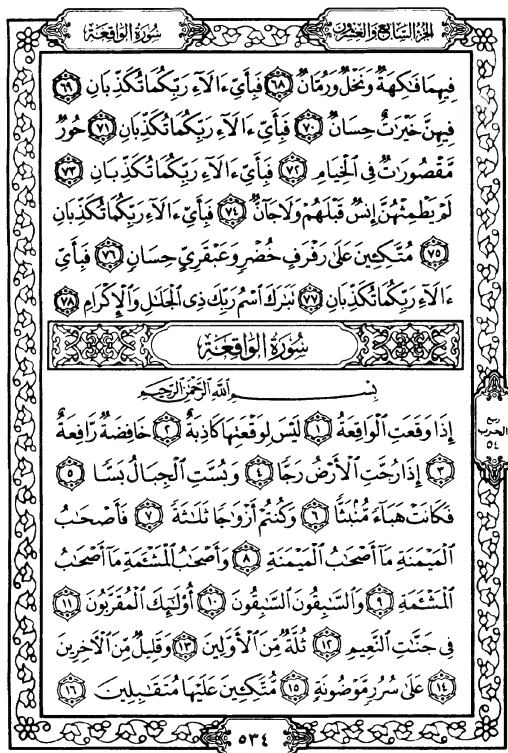 الجزء السابع والعشرون
سورة الواقعة
فِيهِمَا فَٰكِهَةٌ وَنَخْلٌ وَرُمَّانٌ ٦٨ فَبِأَيِّ ءَالَآءِ رَبِّكُمَا تُكَذِّبَانِ ٦٩
فِيهِنَّ خَيْرَٰتٌ حِسَانٌ ٧٠ فَبِأَيِّ ءَالَآءِ رَبِّكُمَا تُكَذِّبَانِ ٧١ حُورٌ
مَّقْصُورَٰتٌ فِي ٱلْخِيَامِ ٧٢ فَبِأَيِّ ءَالَآءِ رَبِّكُمَا تُكَذِّبَانِ ٧٣
لَمْ يَطْمِثْهُنَّ إِنسٌ قَبْلَهُمْ وَلَا جَآنٌّ ٧٤ فَبِأَيِّ ءَالَآءِ رَبِّكُمَا تُكَذِّبَانِ
٧٥ مُتَّكِـِٔينَ عَلَىٰ رَفْرَفٍ خُضْرٍ وَعَبْقَرِيٍّ حِسَانٍ ٧٦ فَبِأَيِّ
ءَالَآءِ رَبِّكُمَا تُكَذِّبَانِ ٧٧ تَبَٰرَكَ ٱسْمُ رَبِّكَ ذِي ٱلْجَلَٰلِ وَٱلْإِكْرَامِ ٧٨
سُورَةُ الوَاقِعَةِ
بِسْمِ ٱللَّهِ ٱلرَّحْمَٰنِ ٱلرَّحِيمِ
إِذَا وَقَعَتِ ٱلْوَاقِعَةُ ١ لَيْسَ لِوَقْعَتِهَا كَاذِبَةٌ ٢ خَافِضَةٌ رَّافِعَةٌ
٣ إِذَا رُجَّتِ ٱلْأَرْضُ رَجًّا ٤ وَبُسَّتِ ٱلْجِبَالُ بَسًّا ٥
فَكَانَتْ هَبَآءً مُّنۢبَثًّا ٦ وَكُنتُمْ أَزْوَٰجًا ثَلَٰثَةً ٧ فَأَصْحَٰبُ
ٱلْمَيْمَنَةِ مَآ أَصْحَٰبُ ٱلْمَيْمَنَةِ ٨ وَأَصْحَٰبُ ٱلْمَشْـَٔمَةِ مَآ أَصْحَٰبُ
ٱلْمَشْـَٔمَةِ ٩ وَٱلسَّٰبِقُونَ ٱلسَّٰبِقُونَ ١٠ أُو۟لَٰٓئِكَ ٱلْمُقَرَّبُونَ ١١
فِي جَنَّٰتِ ٱلنَّعِيمِ ١٢ ثُلَّةٌ مِّنَ ٱلْأَوَّلِينَ ١٣ وَقَلِيلٌ مِّنَ ٱلْآخِرِينَ
١٤ عَلَىٰ سُرُرٍ مَّوْضُونَةٍ ١٥ مُّتَّكِـِٔينَ عَلَيْهَا مُتَقَٰبِلِينَ ١٦
ربع
الحزب
٥٤
٥٣٤